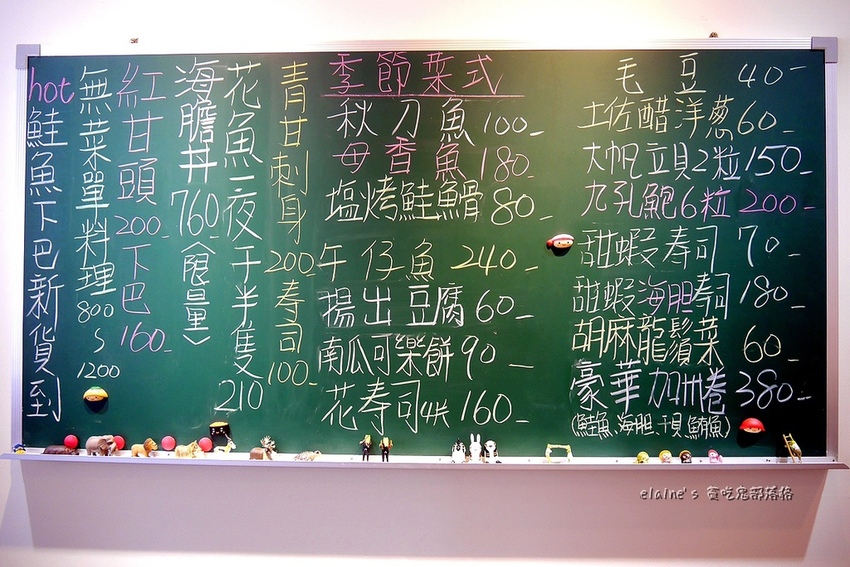 hot 鮭魚下巴新貨到
無菜單料理 800~1200
紅甘頭 200- 下巴 160-
海膽丼 760-〈限量〉
花魚一夜干半隻 210
青甘刺身 200 寿司 100-
季節菜式
秋刀魚 100-
母香魚 180-
塩烤鮭魚骨 80-
午仔魚 240-
揚出豆腐 60-
南瓜可樂餅 90-
花寿司 4片 160-
毛豆 40-
土佐醋洋葱 60-
大帆立貝2粒 150-
九孔鮑6粒 200-
甜蝦寿司 70-
甜蝦海胆寿司 180-
胡麻龍鬚菜 60-
豪華加州卷 380-
(鮭魚、海胆、干貝、鮪魚)
elaine's 貪吃鬼部落格